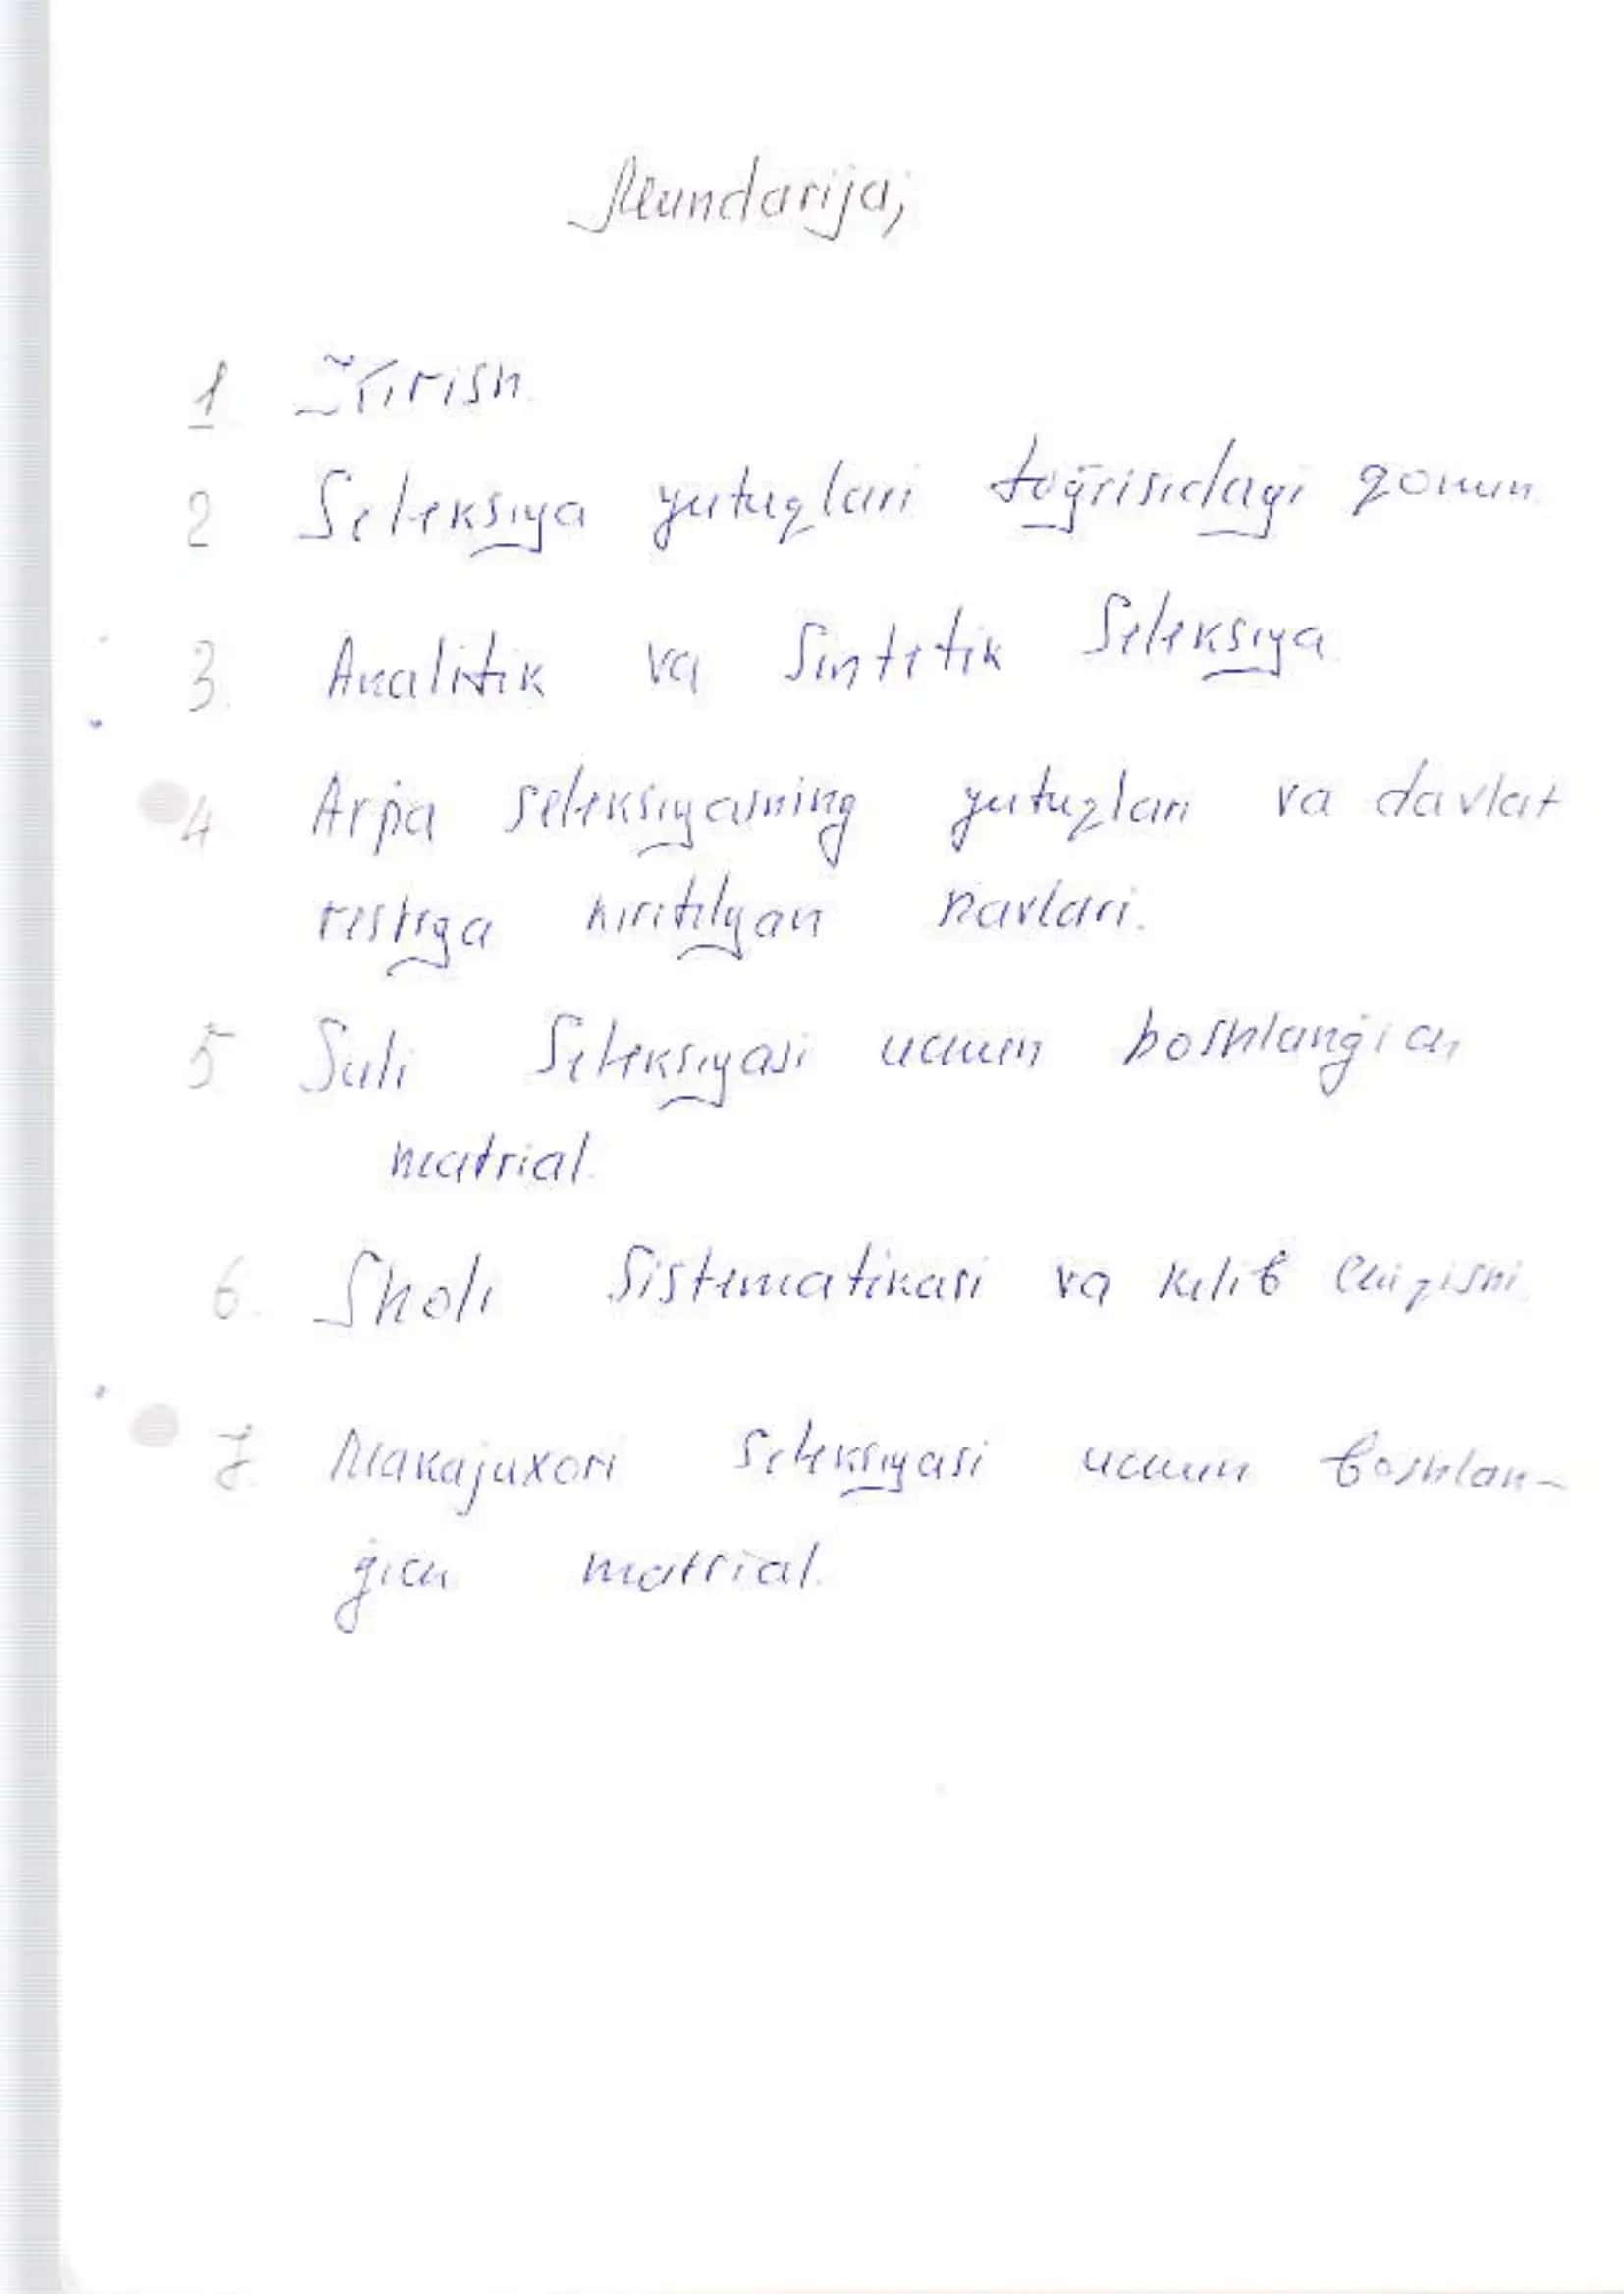 Mundarija;
1 Kirish.
2 Seleksiya yutuqlari toğrisidagi qonun.
3. Analitik va Sintetik Seleksiya
4 Arpa seleksiyasining yutuqlari va davlat
restiga kiritilgan navlari.
5 Suli Seleksiyasi uchun boshlanğich
matrial.
6. Sholi Sistematikasi va kelib chiqishi.
7. Makajuxori Seleksiyasi uchun boshlan-
ğich matrial.